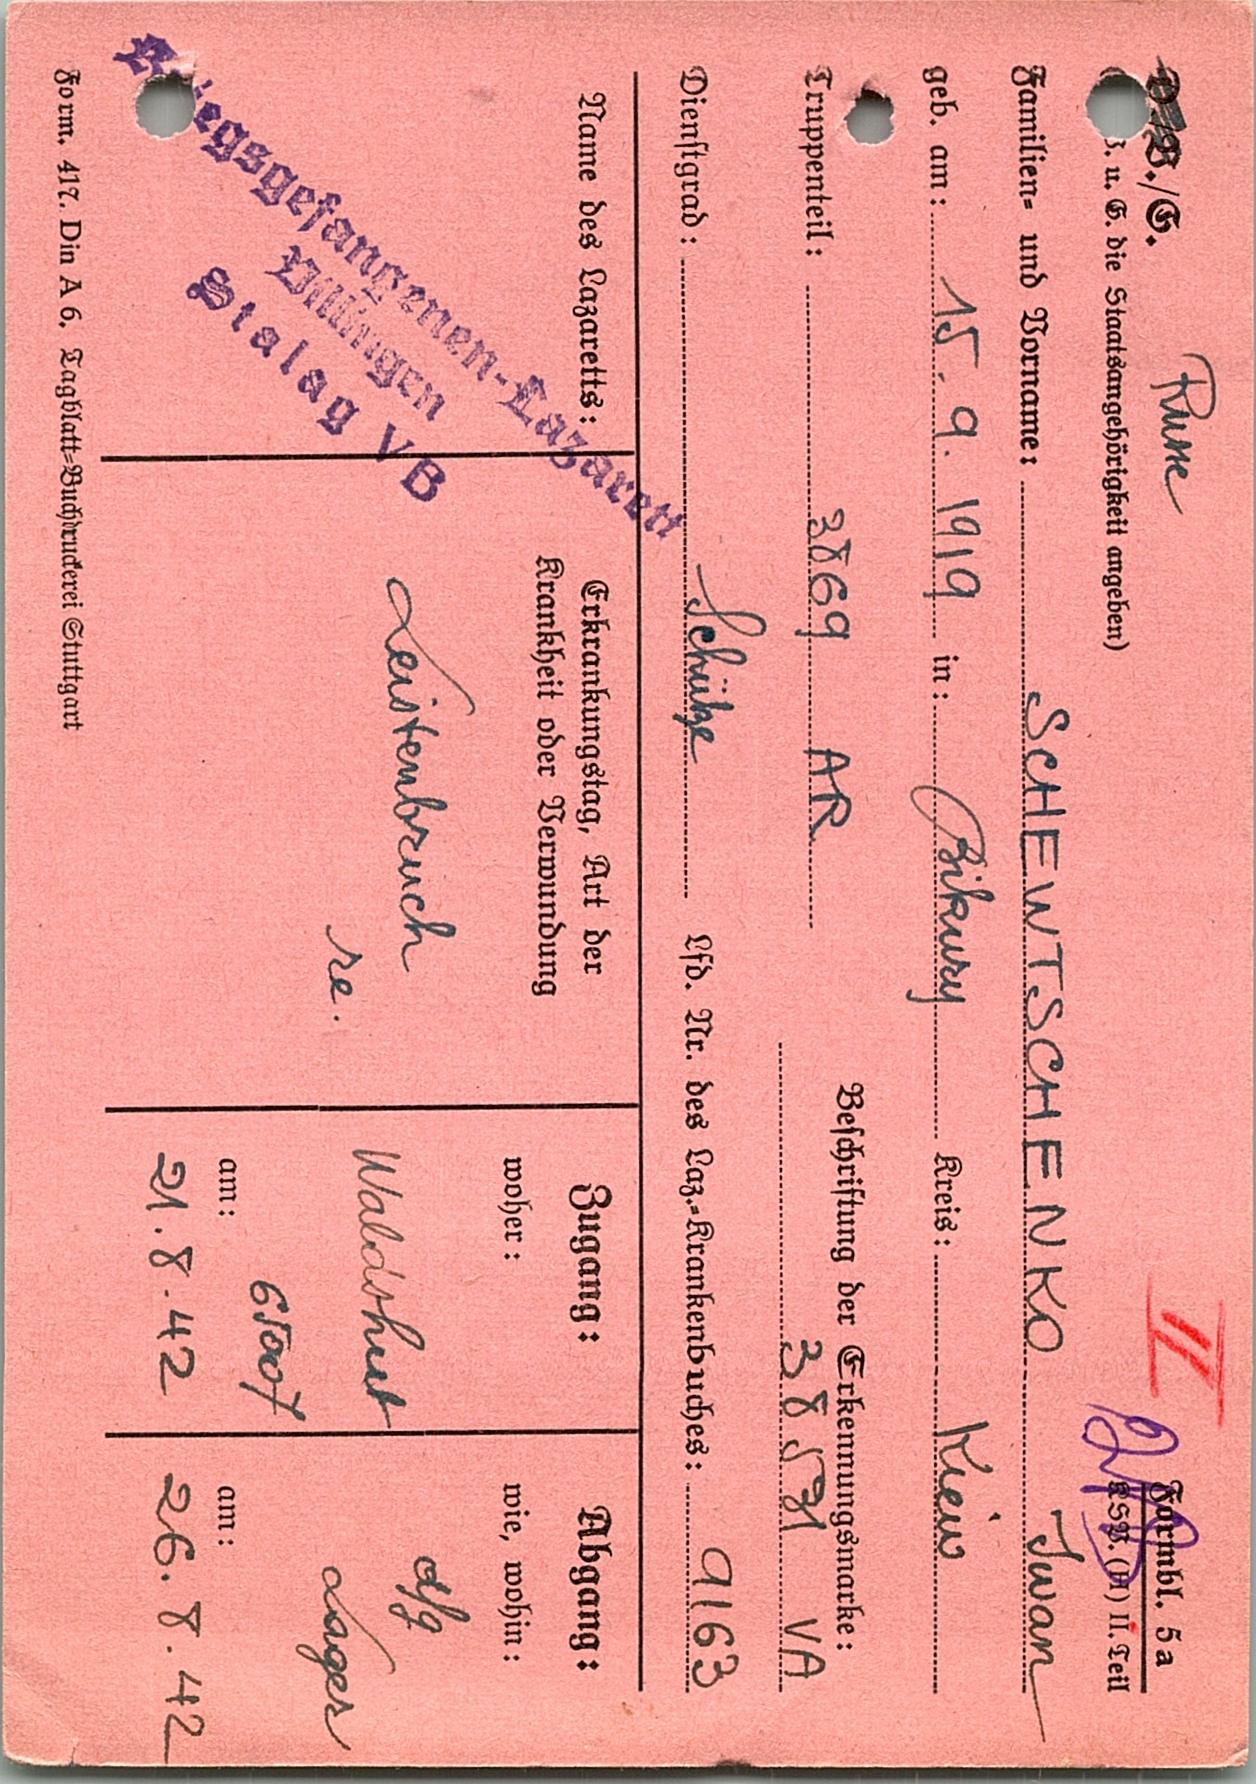 V./G. Russe
Formbl. 5a
KSD. (H) II. Teil
II
u. G. die Staatsangehörigkeit angeben)
Familien- und Vorname: SCHEWTSCHENKO Iwan
geb. am: 15. 9. 1919 in: Bikury Kreis: Kiew
Truppenteil: 3869 AR Beschriftung der Erkennungsmarke:
38531 VA
Dienstgrad: Schütze Lfd. Nr. des Laz.-Krankenbuches: 9163
Name des Lazaretts:
Kriegsgefangenen-Lazarett
Villingen
Stalag VB
Erkrankungstag, Art der
Krankheit oder Verwundung
Leistenbruch
re.
Zugang:
woher:
Waldshut
6507
am:
21. 8. 42
Abgang:
wie, wohin:
d/g
Lager
am:
26. 8. 42
Form. 417. Din A 6. Tagblatt-Buchdruckerei Stuttgart